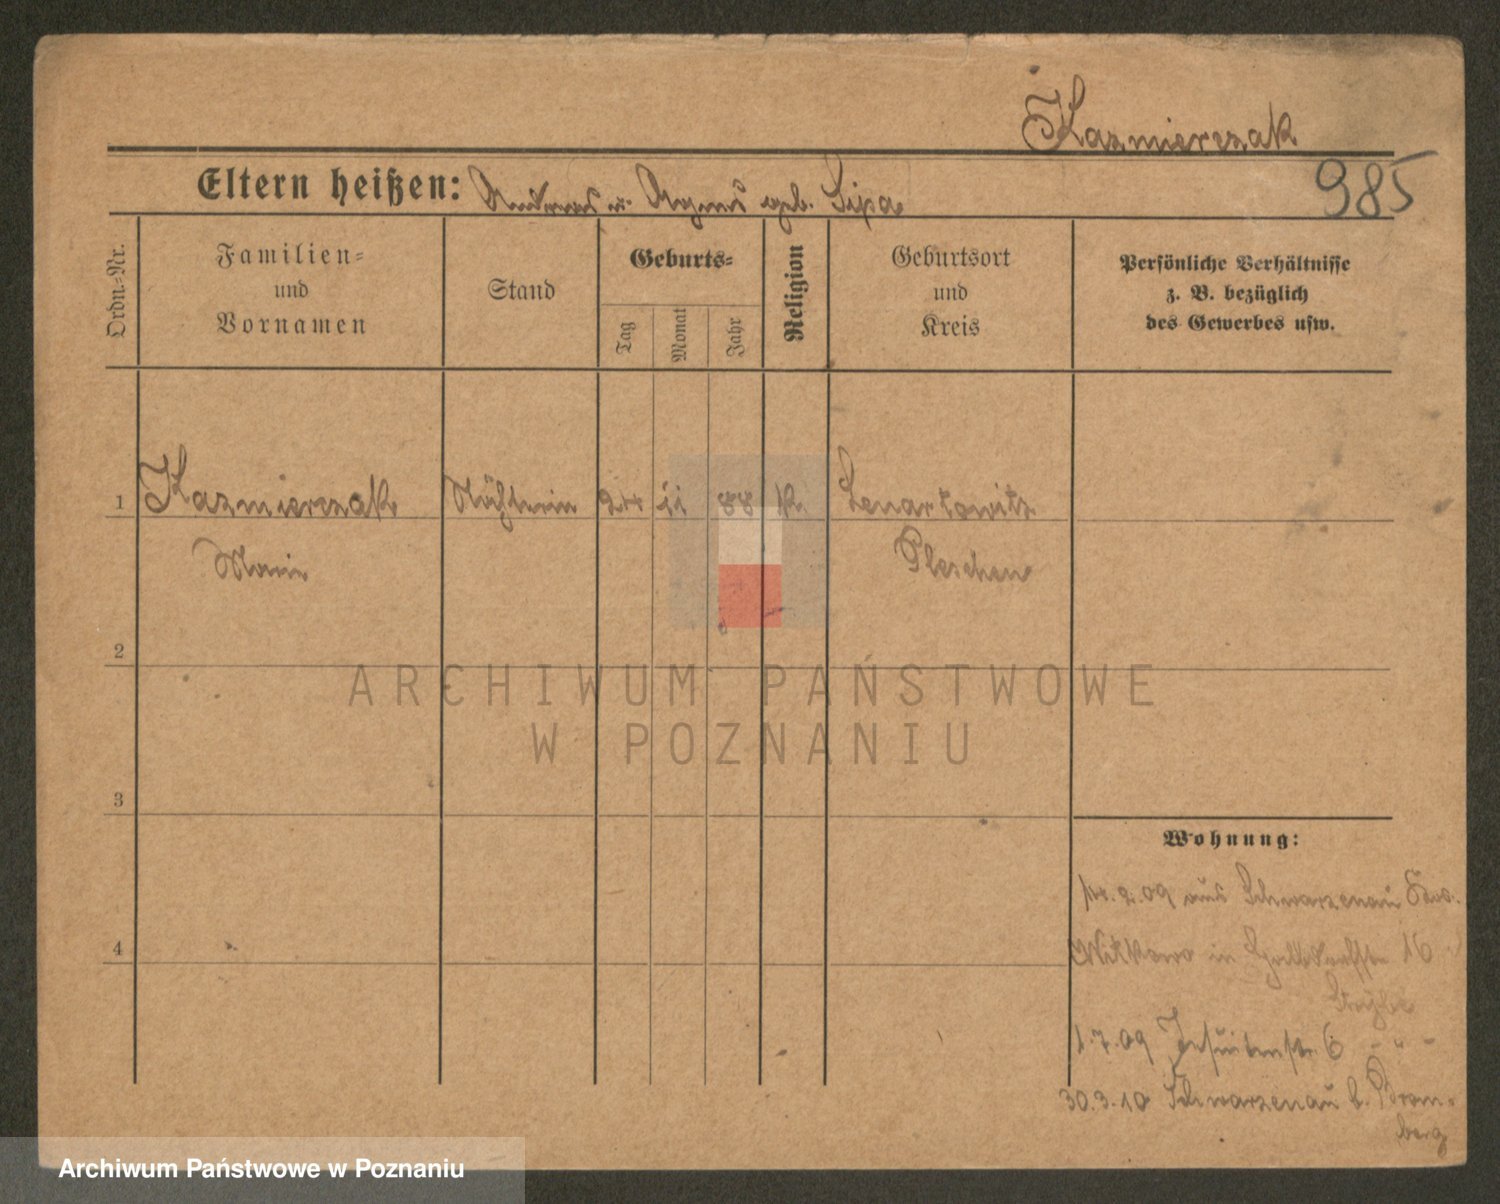 Kazmierczak
985
Eltern heißen: Andreas u. Agnes geb. Lipa
Ordn.=Nr.
Familien=
und
Vornamen
Stand
Geburts=
Tag
Monat
Jahr
Religion
Geburtsort
und
Kreis
Persönliche Verhältnisse
z. B. bezüglich
des Gewerbes usw.
1 Kazmierczak Nähterin 24 11 88 k. Lenartowitz
Marie Pleschen
2
ARCHIWUM PAŃSTWOWE
W POZNANIU
3
Wohnung:
14.2.09 aus Schwarzenau
4
Witkowo in 16
1.7.09 Jesuitenstr. 6 - " -
30.3.10 Schwarzenau b. Brom-
berg
Archiwum Państwowe w Poznaniu